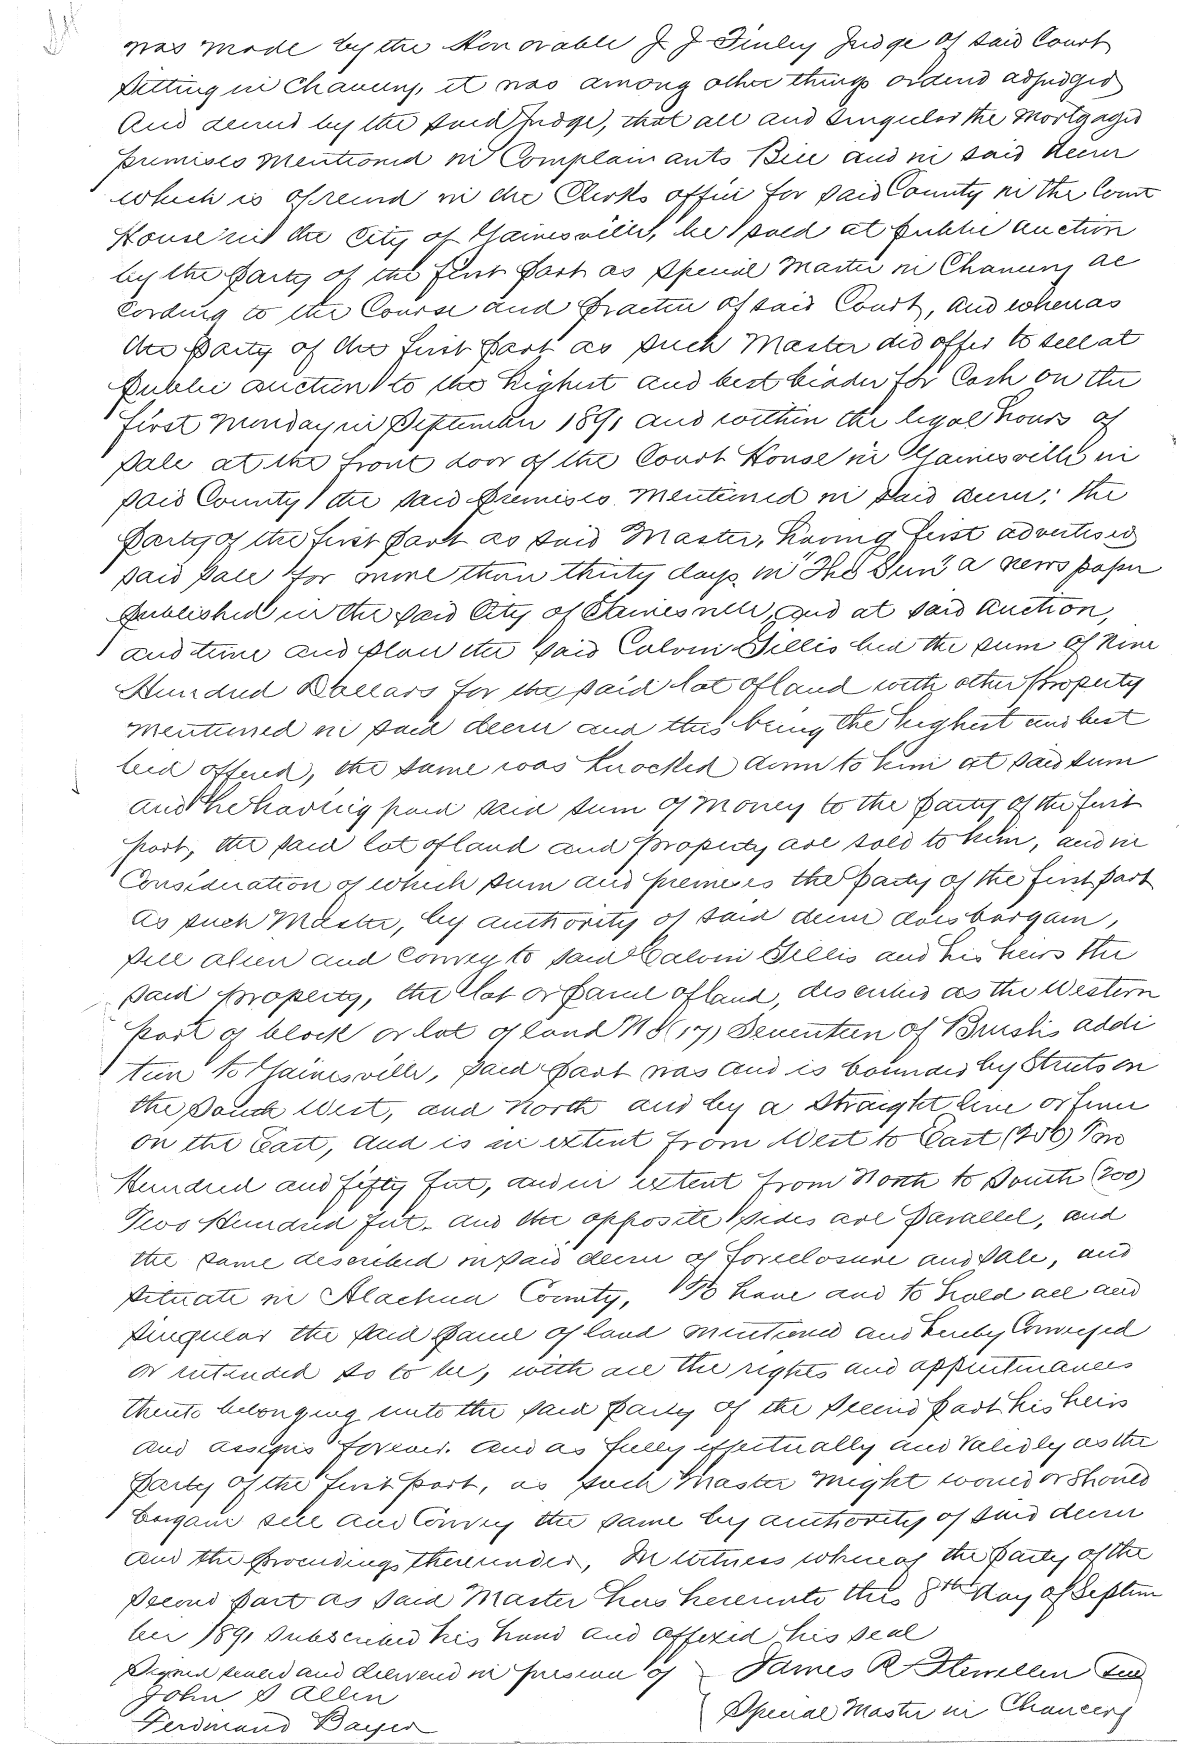 was made by the Honorable J J Finley Judge of said Court
Sitting in Chancery, it was among other things ordered adjudged
And decreed by the said Judge, that all and Singular the Mortgaged
premises mentioned in Complainants Bill and in said decree
which is of record in the Clerks office for said County in the Court
House in the City of Gainesville, be sold at public auction
by the party of the first part as special Master in Chancery ac
cording to the Course and practice of said Court, and whereas
the party of the first part as such Master did offer to sell at
public auction to the highest and best bidder for Cash on the
first Monday in September 1891 and within the legal hours of
sale at the front door of the Court House in Gainesville in
said County the said premises mentioned in said decree; the
party of the first part as said Master, having first advertised
said sale for more than thirty days in "The Sun" a newspaper
published in the said City of Gainesville, and at said auction,
and time and place the said Calvin Gillis bid the sum of Nine
Hundred Dollars for the said lot of land with other property
mentioned in said decree and this being the highest and best
bid offered, the same was knocked down to him at said sum
and he having paid said sum of money to the party of the first
part, the said lot of land and property are sold to him, and in
Consideration of which sum and premises the party of the first part
as such Master, by authority of said decree does bargain,
sell alien and convey to said Calvin Gillis and his heirs the
said property, the lot or parcel of land, described as the Western
part of block or lot of land No (17) Seventeen of Brush's addi
tion to Gainesville, said part was and is bounded by Streets on
the South West, and North and by a straight line or fence
on the East, and is in extent from West to East (250) Two
Hundred and fifty feet, and in extent from North to South (200)
Two Hundred feet. and the opposite sides are parallel, and
the same described in said decree of foreclosure and sale, and
situate in Alachua County, To have and to hold all and
singular the said parcel of land mentioned and hereby Conveyed
or intended so to be, with all the rights and appurtenances
thereto belonging unto the said party of the second part his heirs
and assigns forever. and as fully effectually and validly as the
party of the first part, as such Master might would or should
bargain sell and Convey the same by authority of said decree
and the proceedings thereunder, In witness whereof the party of the
second part as said Master has hereunto this 8th day of Septem
ber 1891 subscribed his hand and affixed his seal
Signed sealed and delivered in presence of James R Flewellen Seal
John S Allen
Special Master in Chancery
Ferdinand Bayer